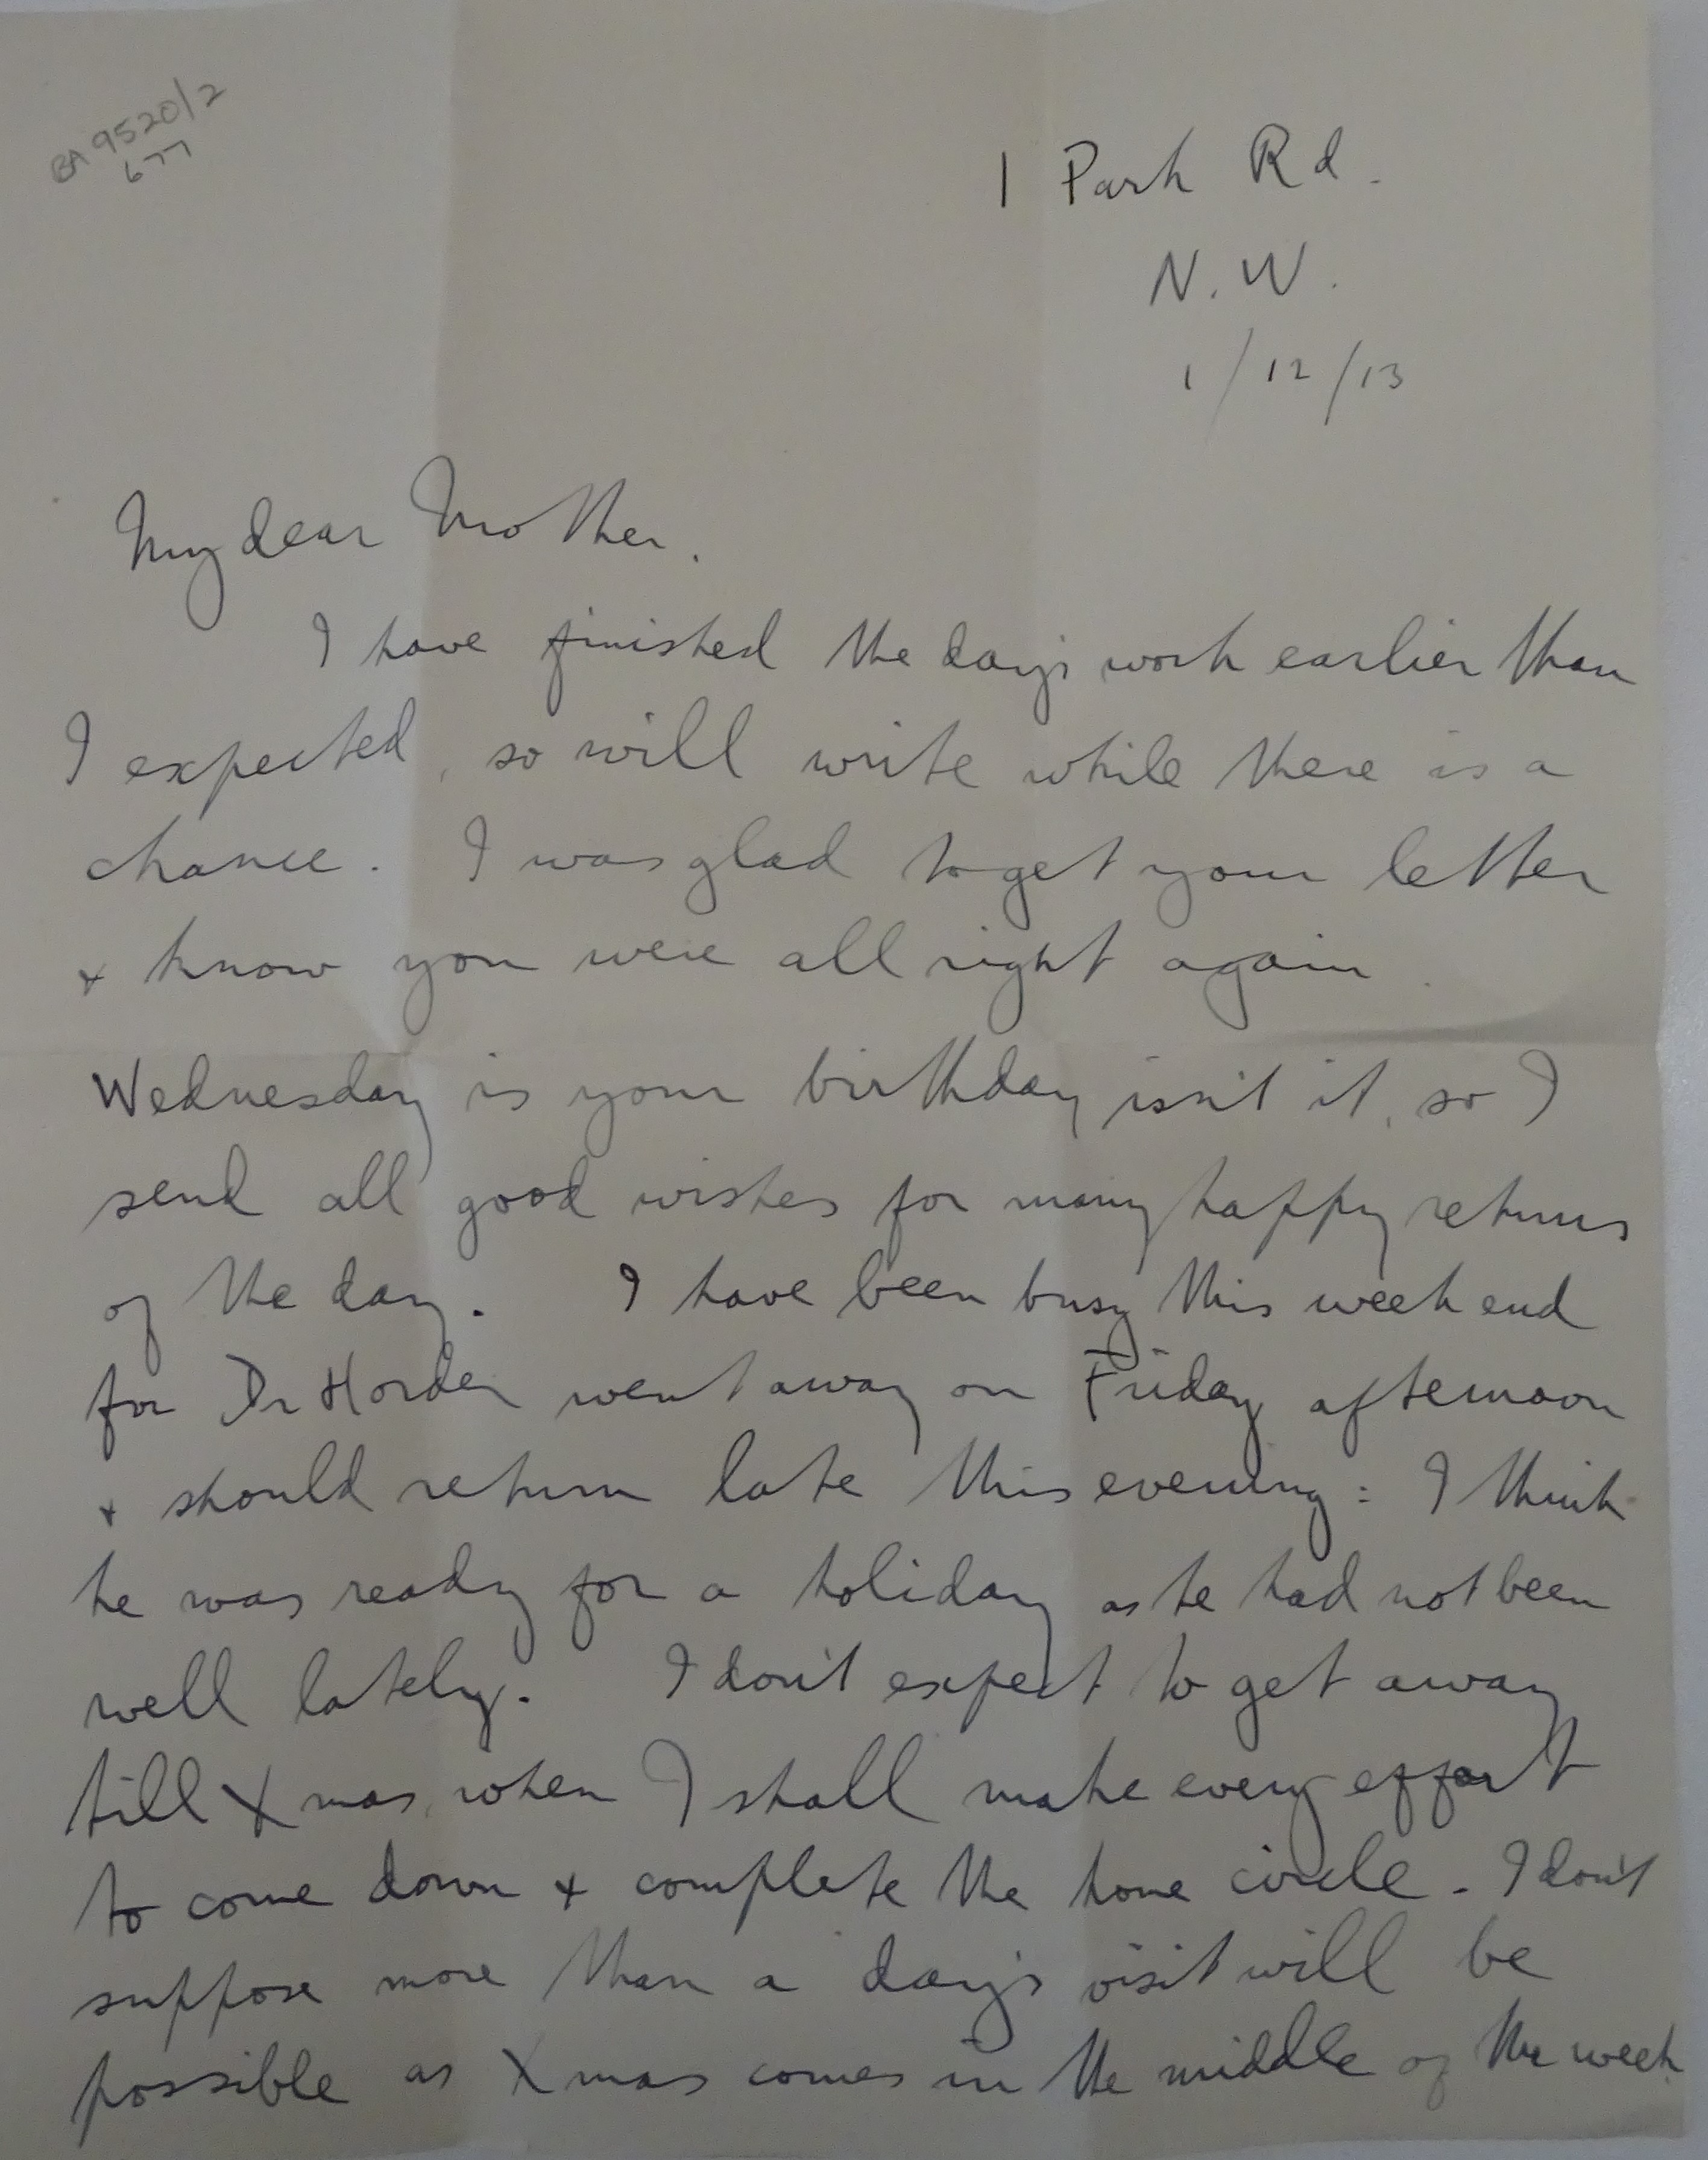 BA 9520/2
677
1 Park Rd.
N. W.
1/12/13
My dear Mother.
I have finished the day's work earlier than
I expected, so will write while there is a
chance. I was glad to get your letter
+ know you were all right again.
Wednesday is your birthday isn't it, so I
send all good wishes for many happy returns
of the day. I have been busy this week end
for Dr Horder went away on Friday afternoon
+ should return late this evening: I think
he was ready for a holiday as he had not been
well lately. I don't expect to get away
till Xmas, when I shall make every effort
to come down + complete the home circle. I don't
suppose more than a day's visit will be
possible as Xmas comes in the middle of the week